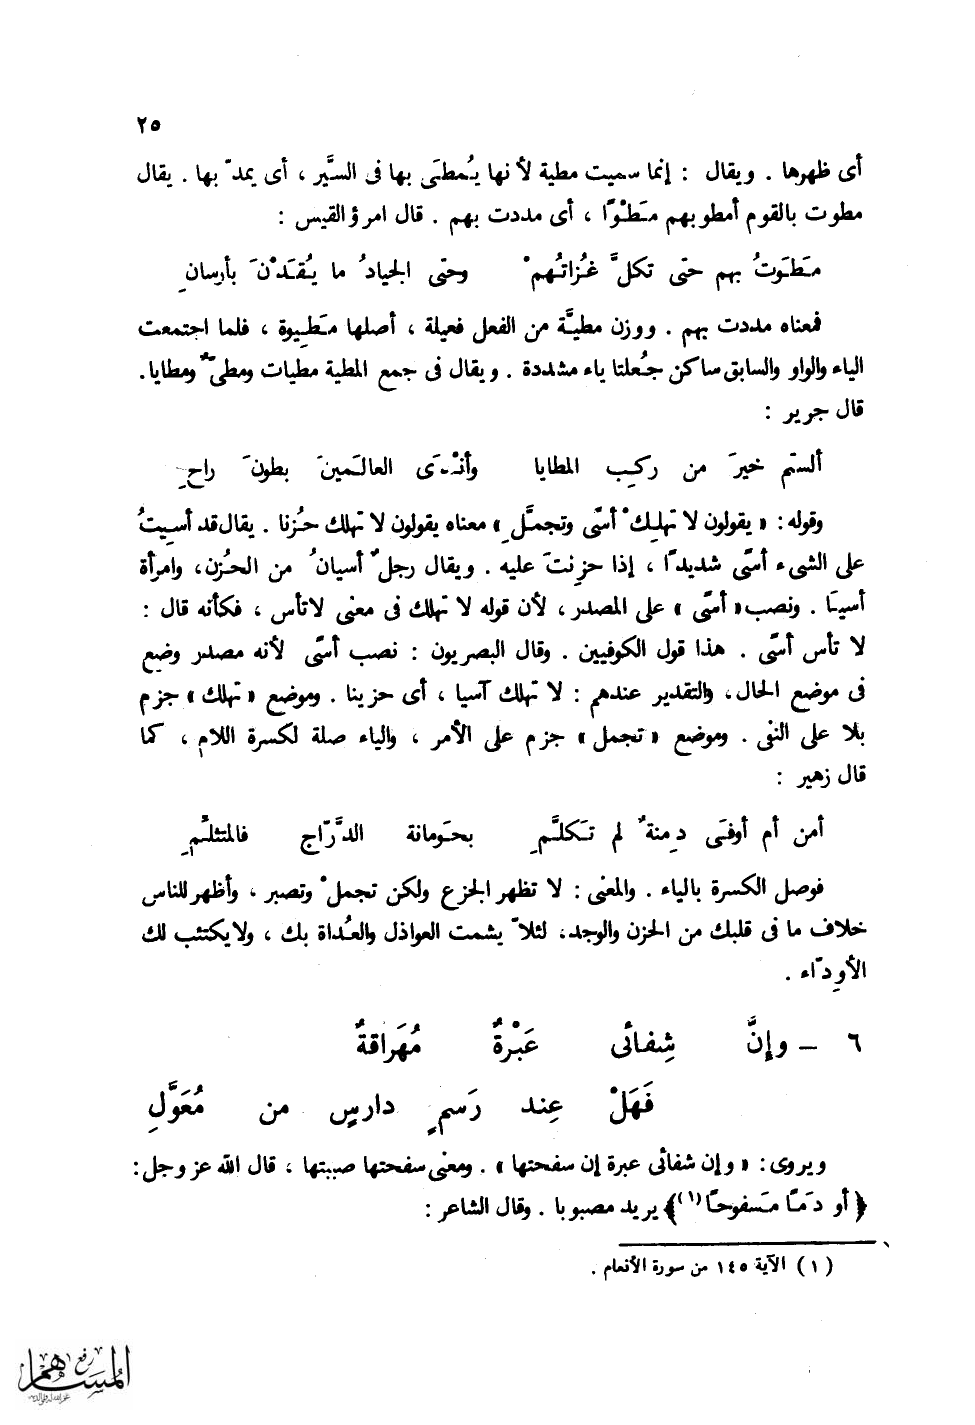 ٢٥
أى ظهرها . ويقال : إنما سميت مطية لأنها يُمطَى بها فى السَّير ، أى يمدّ بها . يقال
مطوت بالقوم أمطو بهم مَطْوًا ، أى مددت بهم . قال امرؤ القيس :
مَطَوتُ بهم حتى تكلَّ غُزاتُهمْ وحتى الجيادُ ما يُقَدْنَ بأرسانِ
فمعناه مددت بهم . ووزن مطيَّة من الفعل فعيلة ، أصلها مَطِيوة ، فلما اجتمعت
الياء والواو والسابق ساكن جُعلتا ياء مشددة . ويقال فى جمع المطية مطيات ومطىّ ومطايا .
قال جرير :
ألستم خيرَ من ركِب المطايا وأنْدَى العالَمينَ بطونَ راحِ
وقوله : « يقولون لا تهلِكْ أسًى وتجمَّلِ » معناه يقولون لا تهلك حُزنا . يقال قد أسِيتُ
على الشىء أسًى شديدًا ، إذا حزِنتَ عليه . ويقال رجلٌ أسيانُ من الحُزن ، وامرأة
أسيَا . ونصب « أسًى » على المصدر ، لأن قوله لا تهلك فى معنى لا تأس ، فكأنه قال :
لا تأس أسًى . هذا قول الكوفيين . وقال البصريون : نصب أسًى لأنه مصدر وضع
فى موضع الحال ، والتقدير عندهم : لا تهلك آسيا ، أى حزينا . وموضع « تهلك » جزم
بلا على النهى . وموضع « تجمل » جزم على الأمر ، والياء صلة لكسرة اللام ، كما
قال زهير :
أمن أم أوفَى دِمنةٌ لم تَكلَّمِ بحَومانة الدَّرَّاج فالمتثلَّمِ
فوصل الكسرة بالياء . والمعنى : لا تظهر الجزع ولكن تجملْ وتصبر ، وأظهر للناس
خلاف ما فى قلبك من الحزن والوجد ، لئلاّ يشمت العواذل والعُداة بك ، ولا يكتئب لك
الأوِدّاء .
٦ – وإنَّ شِفائى عَبْرةٌ مُهَراقةٌ
فَهَلْ عِند رَسمٍ دارسٍ من مُعَوَّلِ
ويروى : « وإن شفائى عبرة إن سفحتها » . ومعنى سفحتها صببتها ، قال الله عز وجل :
﴿ أو دَمًا مَسفوحًا (١) ﴾ يريد مصبوبا . وقال الشاعر :
( ١ ) الآية ١٤٥ من سورة الأنعام .